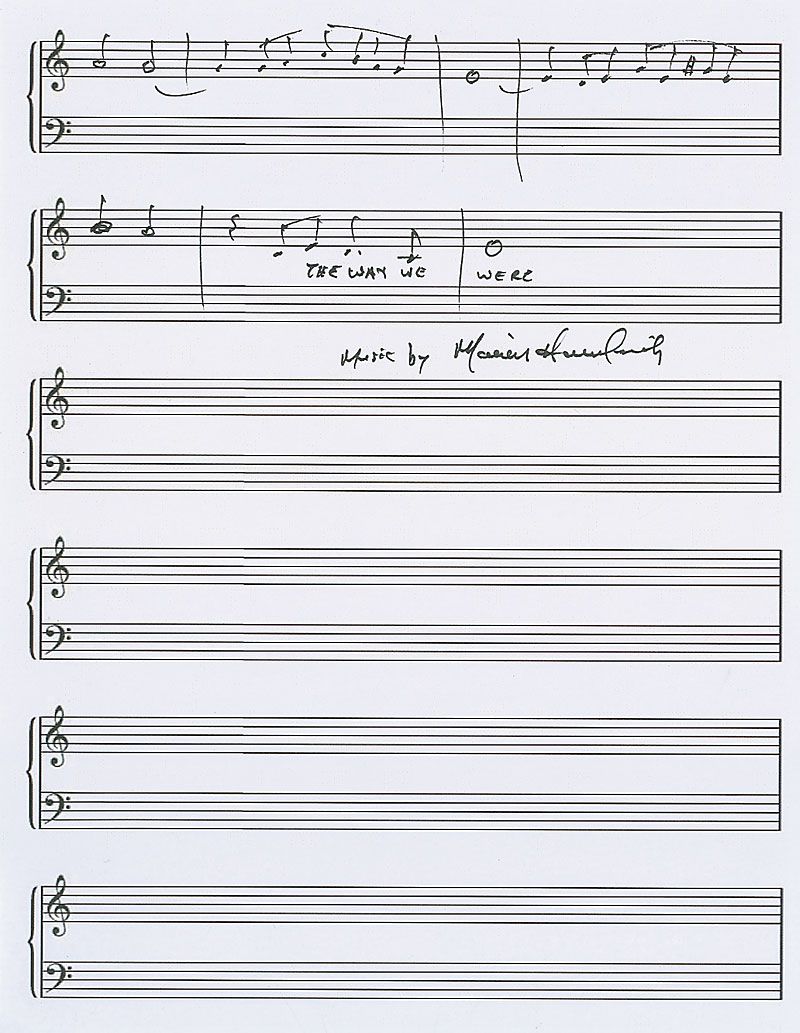 THE WAY WE WERE
Music by Marvin Hamlisch